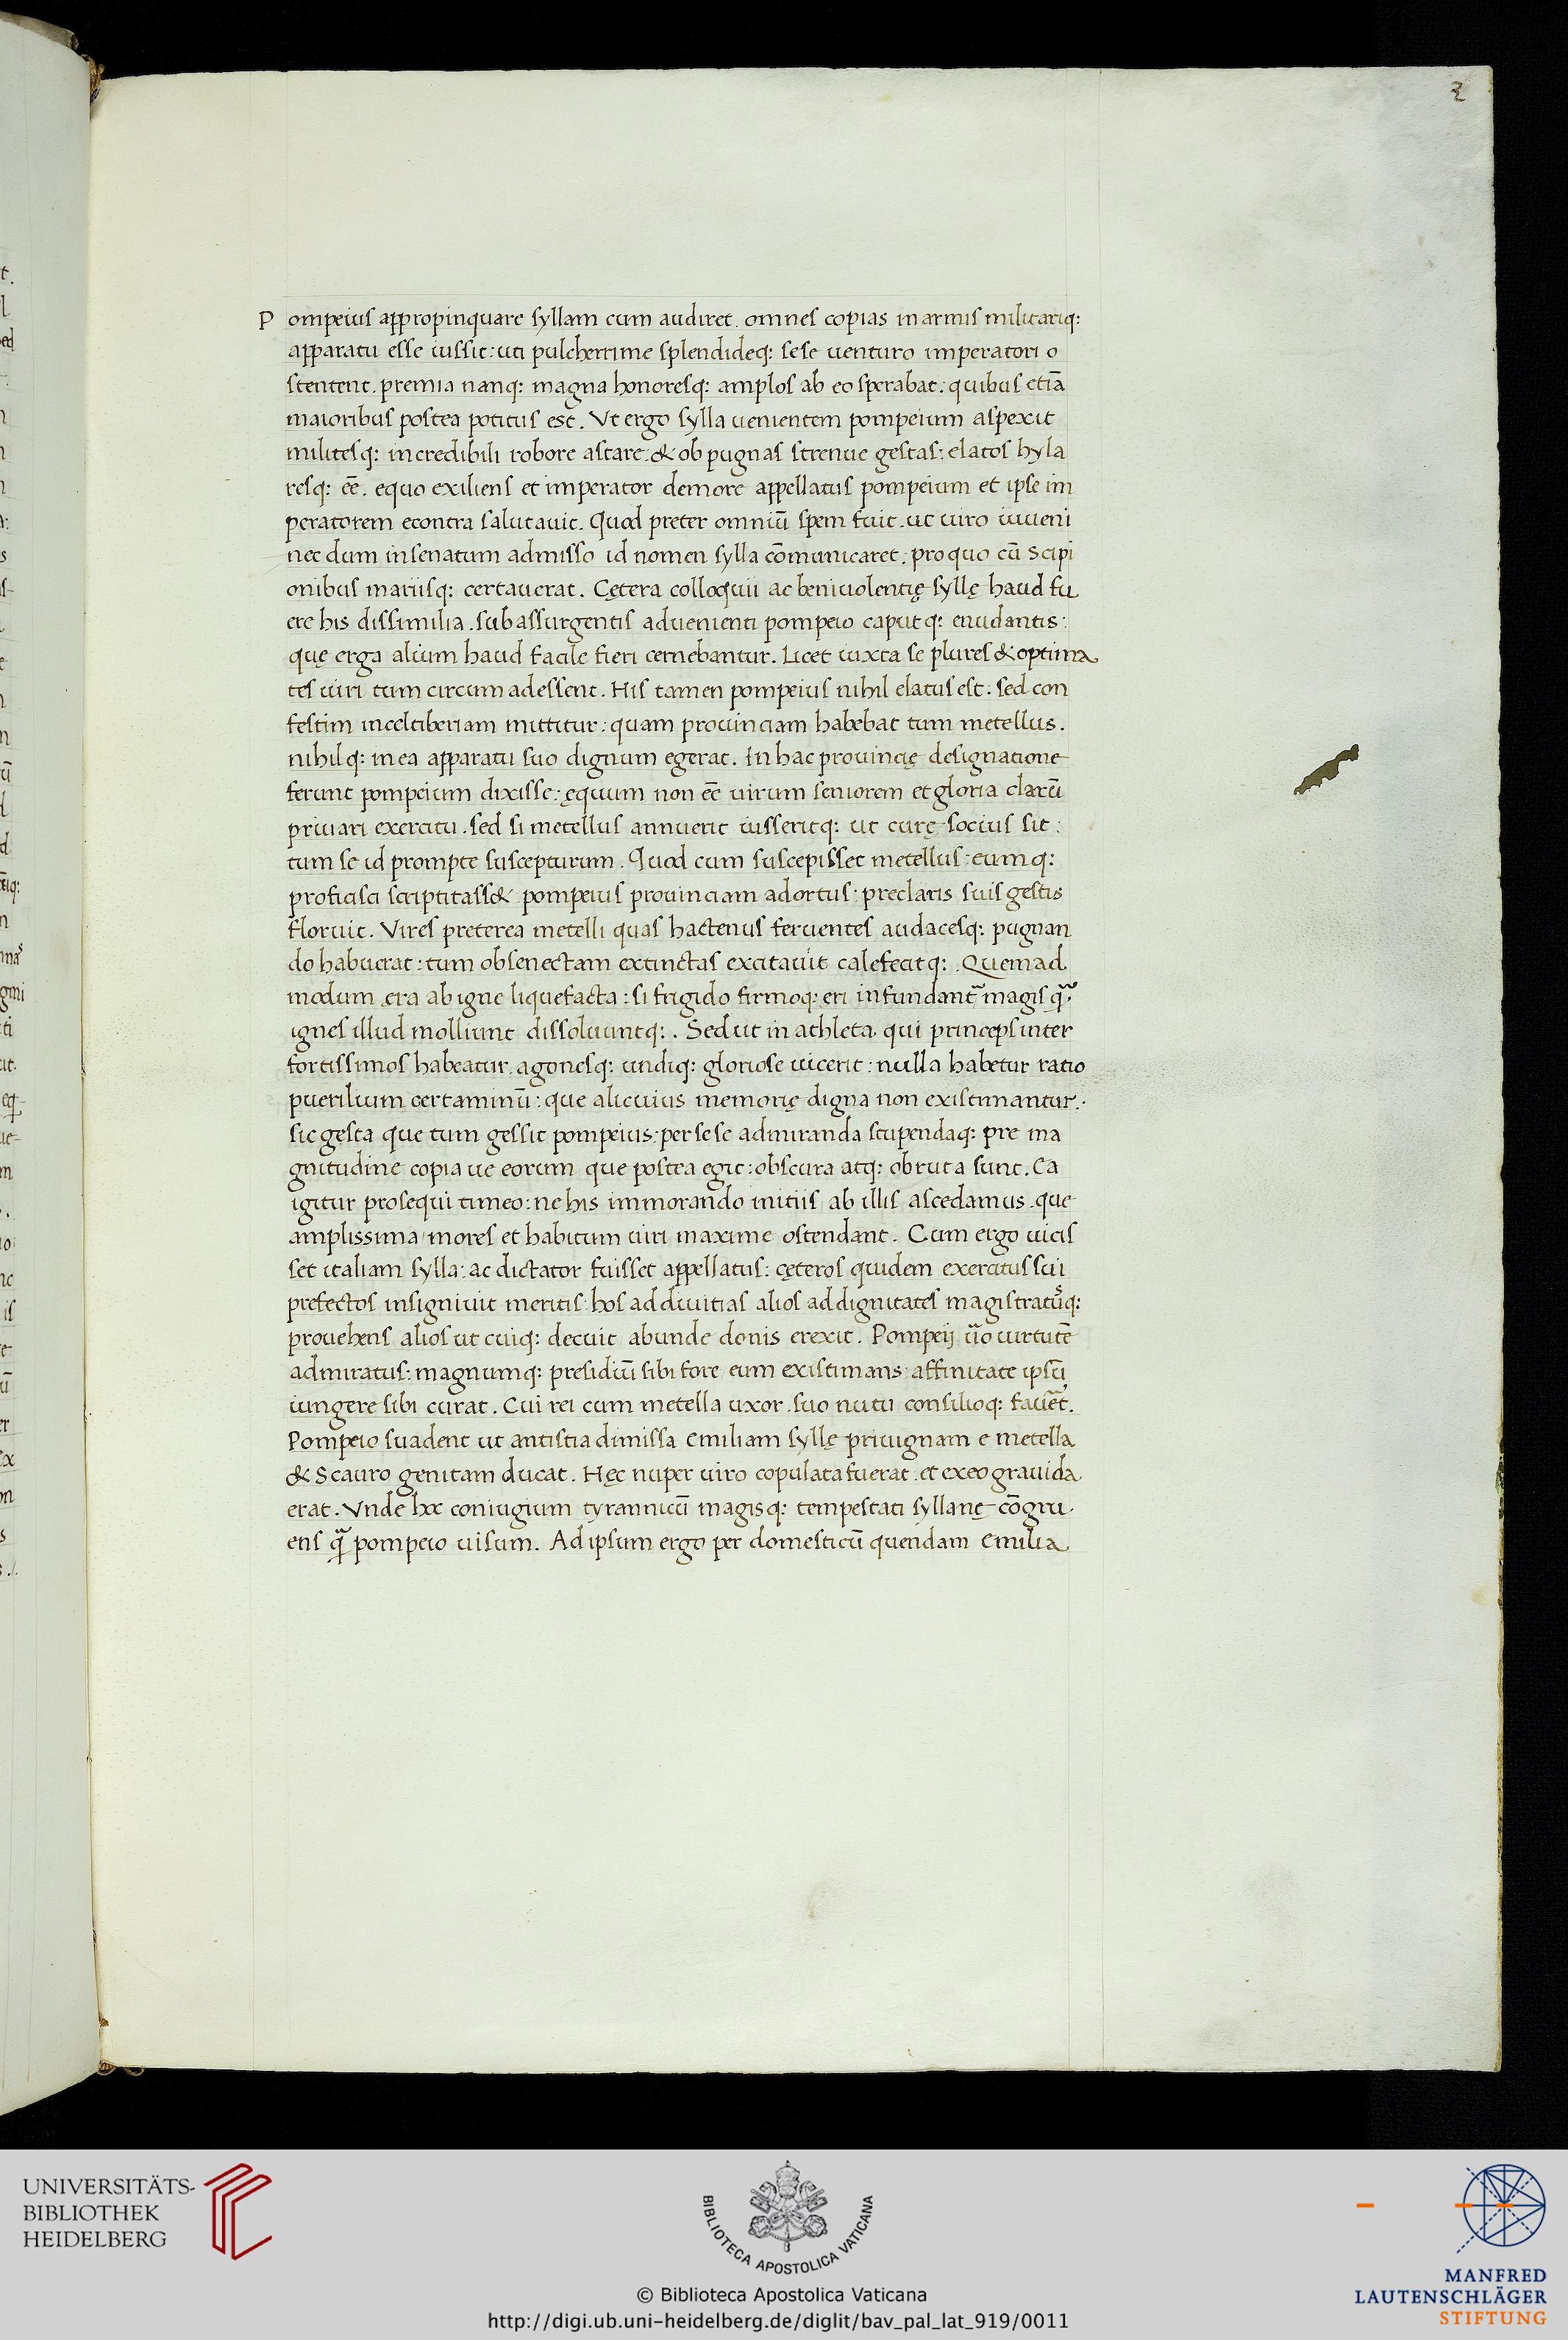 2
Pompeius appropinquare syllam cum audiret. omnes copias in armis militariq:
apparatu esse iussit: uti pulcherrime splendideq: sese uenturo imperatori o
stentent. premia nanq: magna honoresq: amplos ab eo sperabat: quibus etiā
maioribus postea potitus est. Vt ergo sylla uenientem pompeium aspexit
militesq: incredibili robore astare: & ob pugnas strenue gestas: elatos hyla
resq: eē. equo exiliens et imperator de more appellatus pompeium et ipse im
peratorem econtra salutauit. Quod preter omniū spem fuit. ut uiro iuueni
nec dum in senatum admisso id nomen sylla cōmunicaret: pro quo cū scipi
onibus mariisq: certauerat. Cętera colloquii ac beniuolentię syllę haud fu
ere his dissimilia. sub assurgentis aduenienti pompeio caput q: enudantis:
quę erga alium haud facile fieri cernebantur. Licet iuxta se plures & optima
tes uiri tum circum adessent. His tamen pompeius nihil elatus est: sed con
festim in celtiberiam mittitur: quam prouinciam habebat tum metellus.
nihil q: in ea apparatu suo dignum egerat. In hac prouincię designatione
ferunt pompeium dixisse: ęquum non eē uirum seniorem et gloria clarū
priuari exercitu. sed si metellus annuerit iusseritq: ut curę socius sit:
tum se id prompte suscepturum. Quod cum suscepisset metellus: eumq:
proficisci scriptitass& pompeius prouinciam adortus: preclaris suis gestis
floruit. Vires preterea metelli quas hactenus feruentes audacesq: pugnan
do habuerat: tum ob senectam extinctas excitauit calefecitq:. Quem ad
modum ęra ab igne liquefacta: si frigido firmoq: eri infundant᷑ magis quā
ignes illud molliunt dissoluuntq:. Sed ut in athleta. qui princeps inter
fortissimos habeatur. agonesq: undiq: gloriose uicerit: nulla habetur ratio
puerilium certaminū: que alicuius memorię digna non existimantur.
sic gesta que tum gessit pompeius: per sese admiranda stupendaq: pre ma
gnitudine copia ue eorum que postea egit: obscura atq: obruta sunt. Ea
igitur prosequi timeo: ne his immorando initiis ab illis ascedamus. que
amplissima mores et habitum uiri maxime ostendant. Cum ergo uicis
set italiam sylla: ac dictator fuisset appellatus: cęteros quidem exercitus sui
prefectos insigniuit meritis: hos ad diuitias alios ad dignitates magistratusq:
prouehens alios ut cuiq: decuit abunde donis erexit. Pompeij ūo uirtutē
admiratus: magnumq: presidiū sibi fore eum existimans: affinitate ipsū
iungere sibi curat. Cui rei cum metella uxor. suo nutu consilioq: fauēt.
Pompeio suadent ut antistia dimissa emiliam syllę priuignam e metella
& scauro genitam ducat. Hęc nuper uiro copulata fuerat: et ex eo grauida
erat. Vnde hoc coniugium tyrannicū magisq: tempestati syllanę cōgru
ens quā pompeio uisum. Ad ipsum ergo per domesticū quendam emilia
UNIVERSITÄTS-
BIBLIOTHEK
HEIDELBERG
BIBLIOTECA APOSTOLICA VATICANA
© Biblioteca Apostolica Vaticana
http://digi.ub.uni-heidelberg.de/diglit/bav_pal_lat_919/0011
MANFRED
LAUTENSCHLÄGER
STIFTUNG